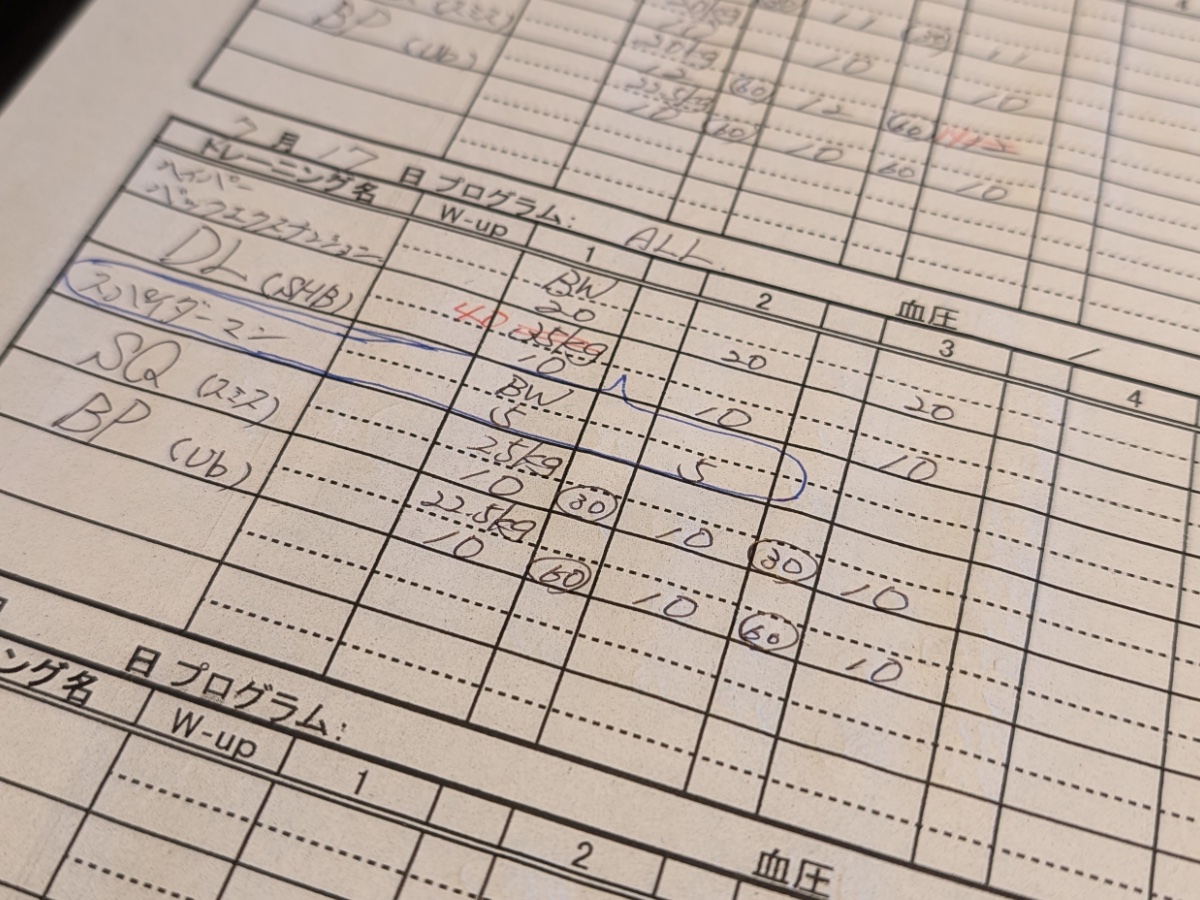 BP (Ub)
20kg 11
10 11
20kg 10
12 60 12 10
22.5kg 60
10 60 10 60 10
7月17日 プログラム: ALL 血圧 /
トレーニング名 W-up 1 2 3 4
ハイパー BW
バックエクステンション 20 20 20
DL (SHB) 40 25kg
10 10 10
スパイダーマン BW
5 5
SQ (スミス) 25kg
10 30 10 30 10
BP (Ub) 22.5kg
10 60 10 60 10
日 プログラム: 血圧
ング名 W-up 1 2